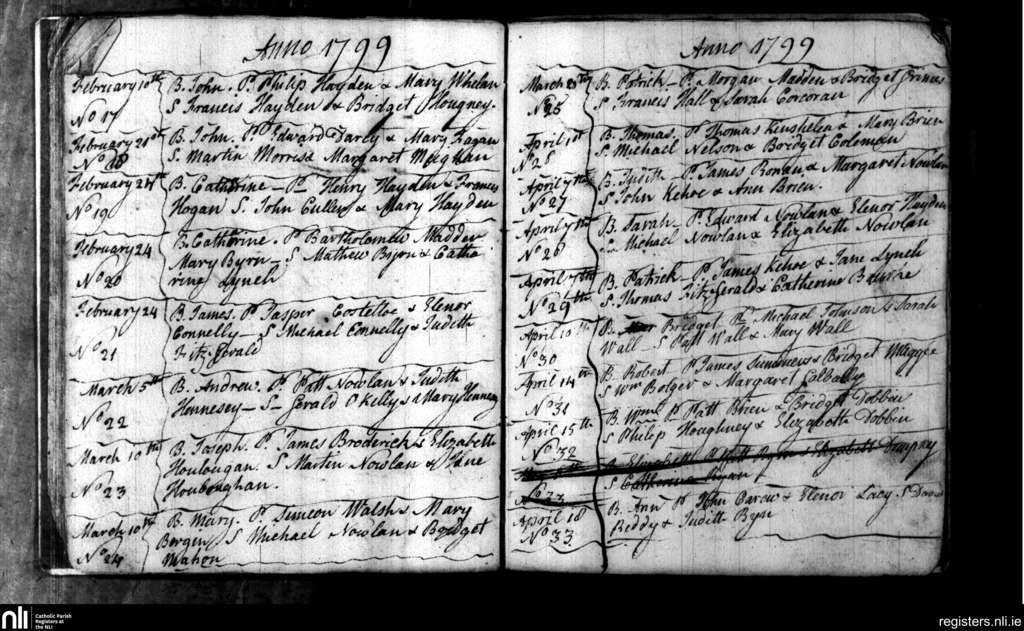 Anno 1799
February 10th B. John. P. Philip Hayden & Mary Whelan
No 17 S Francis Hayden & Bridget
February 21st B. John. P. Edward Darcy & Mary Fagan
No 18 S. Martin Morris & Margaret Meighan
February 24th B. Catherine - P. Henry Hayden & Frances
No 19 Hogan S. John Cullen & Mary Hayden
February 24 B. Catherine. P. Bartholomew Madden
Mary Byrn - S Mathew Byrn & Cathe
No 20 rine Lynch
February 24 B. James. P. Jasper Costelloe & Elenor
Connelly - S Michael Connelly & Judith
No 21 Fitz Gerald
March 5th B. Andrew. P. Patt Nowlan & Judith
No 22 Hennesey - S - Gerald O Kelly & Mary Hennesy
March 10th B. Joseph. P. James Broderick & Elizabeth
Houlougan. S Martin Nowlan &
No 23 Houboughan.
March 10th B. Mary. P. Simeon Walsh & Mary
Bergen S Michael Nowlan & Bridget
No 24 Mahon
Anno 1799
March B. Patrick - P. Morgan Madden & Bridget
No 25 S Francis Hall & Sarah Corcoran
April 1st B. Thomas. P Thomas Kinshelea & Mary Brien
No S. Michael Nelson & Bridget Coleman
April 7th B. Judith - P. James Ronan & Margaret Nowlan
No 27 S John Kehoe & Ann Brien.
April 7th B. Sarah - P. Edward Nowlan & Elenor Hayden
No 28 S. Michael Nowlan & Elizabeth Nowlan
April 7th B. Patrick - P. James Kehoe & Jane Lynch
No 29th S. Thomas Fitz Gerald & Catherine Bourke
April 10th B. Bridget P. Michael Johnson & Sarah
No 30 Wall S Patt Wall & Mary Wall
April 14 B. Robert P. James Summers & Bridget Maggee
No 31 S Wm Bolger & Margaret Colbally
April 15th B. Wm P Patt Brien & Bridget Dobbin
No 32 S Philip Houghney & Elizabeth Dobbin
B. Elizabeth P. Patt Ryan & Elizabeth
No 33 S Catherine Ryan
April 18 B. Ann P John Carew & Elenor Lacy. S David
No 33 Reddy & Judith Byrn
nli
Catholic Parish
Registers at
the NLI
registers.nli.ie